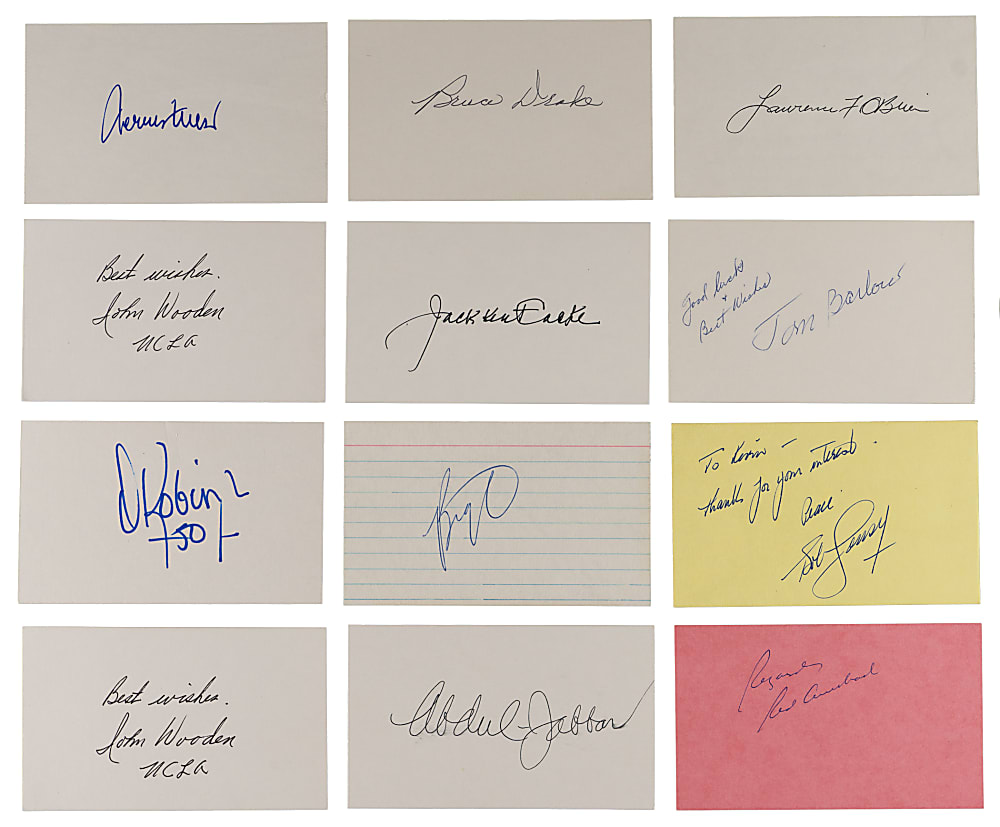 Bruce Drake
Lawrence F O'Brien
Best wishes.
John Wooden
UCLA
Jack Kent Cooke
Good luck
+
Best Wishes
Tom Barlow
D Robin
50
Big O
To Kevin -
thanks for your interest.
Peace
Bob Cousy
Best wishes.
John Wooden
UCLA
Abdul-Jabbar
Regards
Red Auerbach